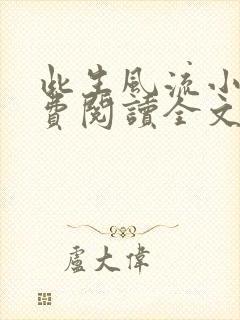 此生風流小
費閱讀全文
盧大偉